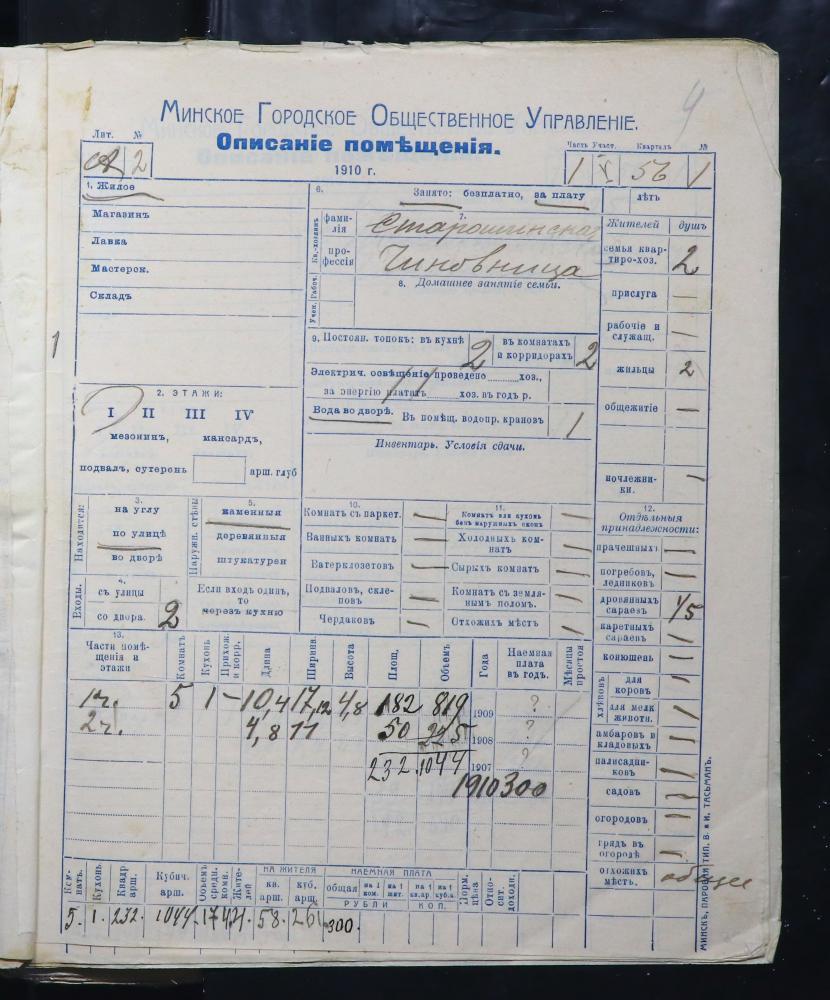 4
Минское Городское Общественное Управленіе.
Описаніе помѣщенія.
1910 г.
Лит. №
2
Часть Участ. Кварталъ №
1 56 1
1. Жилое
Магазинъ
Лавка
Мастерск.
Складъ
1
2. ЭТАЖИ:
I II III IV
мезонинъ, мансардъ,
подвалъ, сутеренъ аршин. глуб
Находится:
3.
на углу
по улицѣ
во дворѣ
Наружн. стѣны
5.
каменныя
деревянныя
штукатурен
Входы.
4.
съ улицы
со двора. 2
Если входъ одинъ,
то
черезъ кухню
6. Занято: безплатно, за плату лѣтъ
Кв.-хозяинъ
фами-
лія
7.
Старошинская
про-
фессія
Чиновница
Рабоч.
Учен.
8. Домашнее занятіе семьи.
9. Постоян. топокъ: въ кухнѣ 2 въ комнатахъ
и корридорахъ 2
Электрич. освѣщеніе проведено ........хоз.,
за энергію платахъ ........ хоз. въ годъ р.
Вода во дворѣ. Въ помѣщ. водопр. крановъ 1
Инвентарь. Условія сдачи.
10.
Комнатъ съ паркет. —
Ванныхъ комнатъ —
Ватерклозетовъ —
Подваловъ, скле-
повъ —
Чердаковъ —
11.
Комнатъ или кухонь
безъ наружныхъ оконъ —
Холодныхъ ком-
натъ —
Сырыхъ комнатъ —
Комнатъ съ земля-
нымъ поломъ. —
Отхожихъ мѣстъ —
Жителей душъ
семья квар-
тиро-хоз. 2
прислуга —
рабочіе и
служащ. —
жильцы 2
общежитіе —
ночлежни-
ки. —
12.
Отдѣльныя
принадлежности:
прачешныхъ —
погребовъ,
ледниковъ —
дровянныхъ
сараевъ 1/5
каретныхъ
сараевъ —
конюшенъ —
хлѣвовъ
для
коровъ —
для мелк
животн. —
амбаровъ и
кладовыхъ —
палисадни-
ковъ —
садовъ —
огородовъ —
грядъ въ
огородѣ —
отхожихъ
мѣстъ. общее
13.
Части помѣ-
щенія и
этажи
Комнатъ Кухонь Прихож. и корр. Длина Ширина Высота Площ. Объемъ Года Наемная плата въ годъ. Мѣсяцы простоя
1ч. 5 1 — 10,4 17,12 4,8 182 819 1909 ?
2ч. 4,8 11 50 225 1908 ?
232 1044 1907 ?
1910 300
Комнатъ. Кухонь Квадр. арш. Кубич. арш. Объемъ средн. комн. Жителей
НА ЖИТЕЛЯ
кв. арш. куб. арщ.
НАЕМНАЯ ПЛАТА
общая на 1 ком. на 1 жит. на 1 кв.ар на 1 куб.а
РУБЛИ КОП.
Норм. цѣна Относит. доходн.
5. 1. 232. 1044. 174 4. 58. 261 300.
МИНСКЪ, ПАРОВАЯ ТИП. В. и И. ТАСЬМАНЪ.